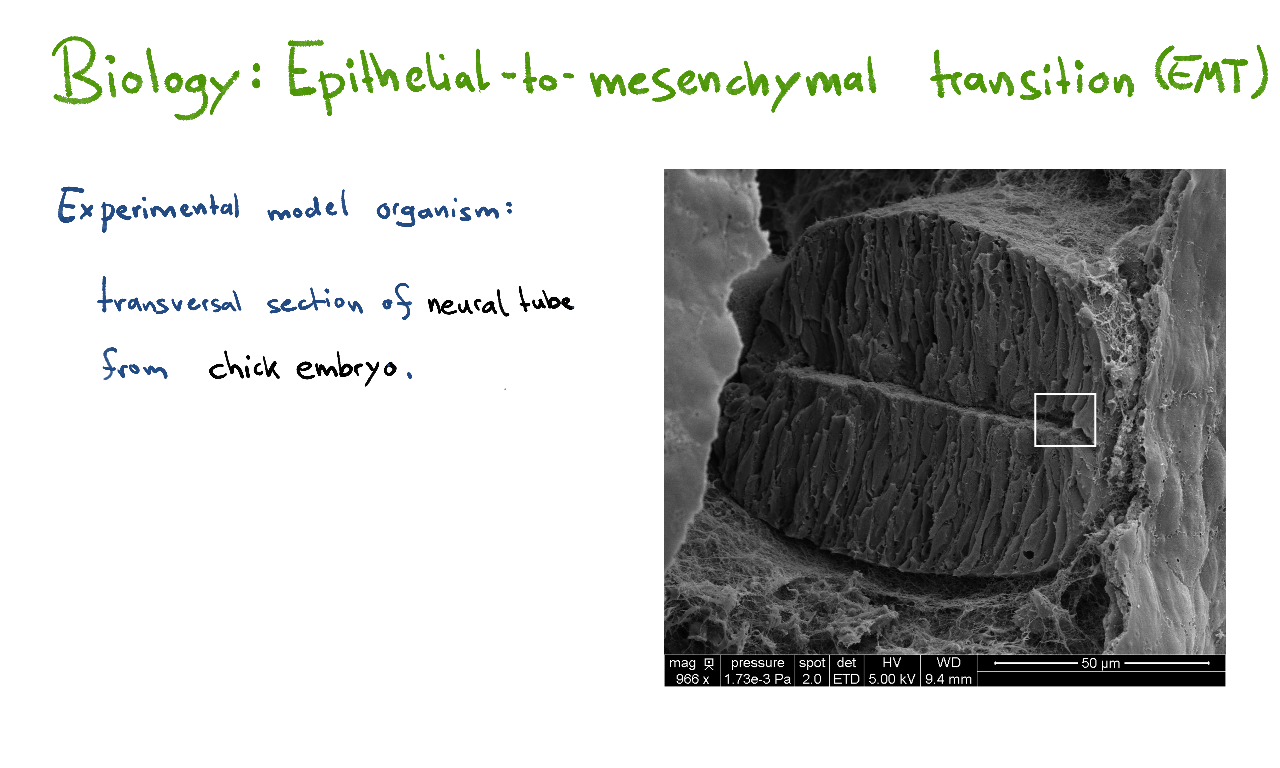 Biology: Epithelial-to-mesenchymal transition (EMT)
Experimental model organism:
transversal section of neural tube
from chick embryo.
mag pressure spot det HV WD 50 µm
966 x 1.73e-3 Pa 2.0 ETD 5.00 kV 9.4 mm